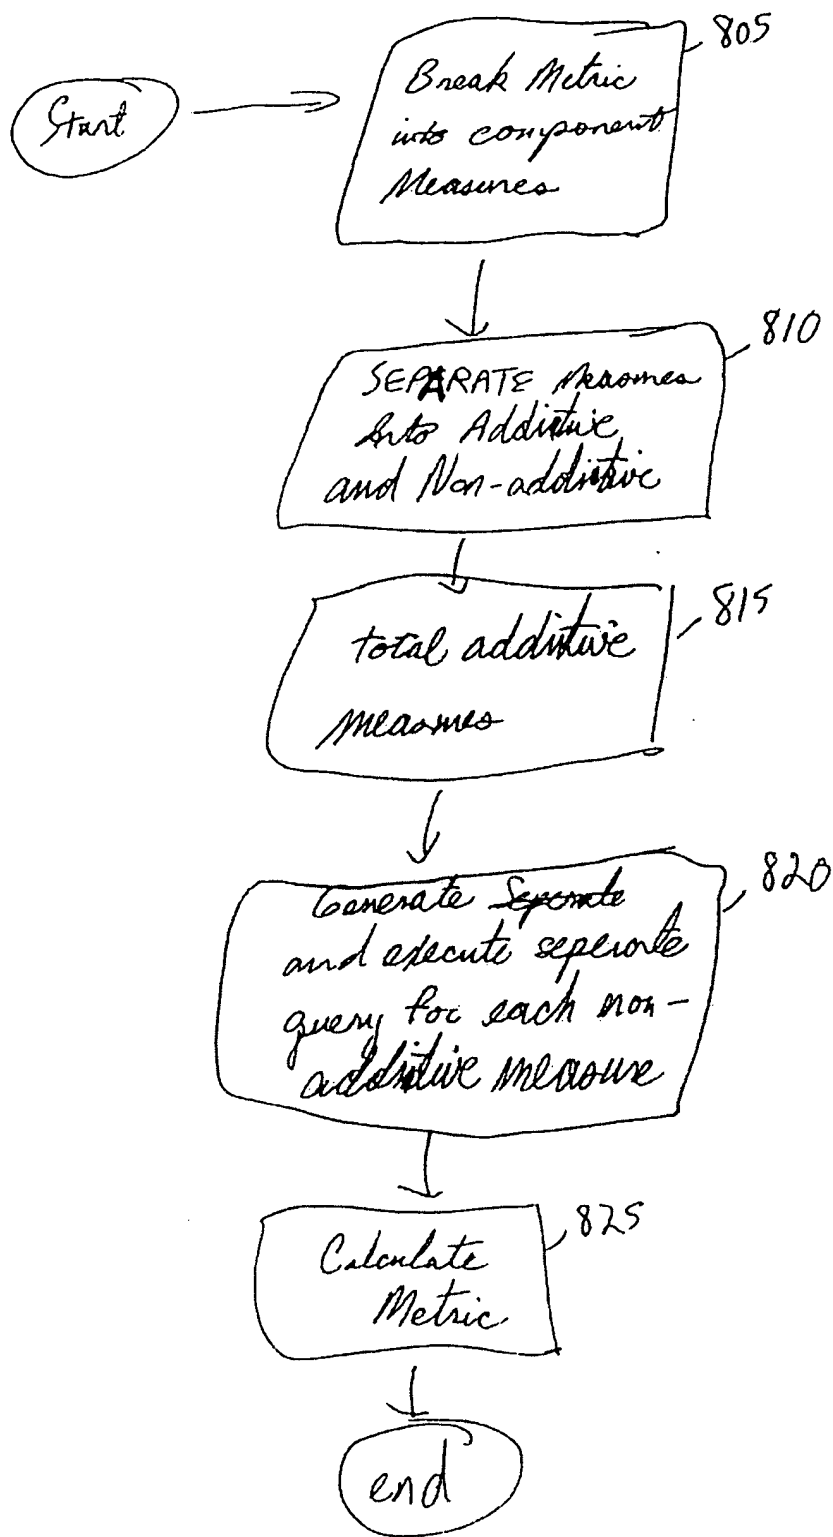 Start
805
Break Metric
into component
Measures
810
SEPARATE Measures
Into Additive
and Non-additive
815
total additive
measures
820
Generate Seperate
and execute seperate
query for each non-
additive measure
825
Calculate
Metric
end